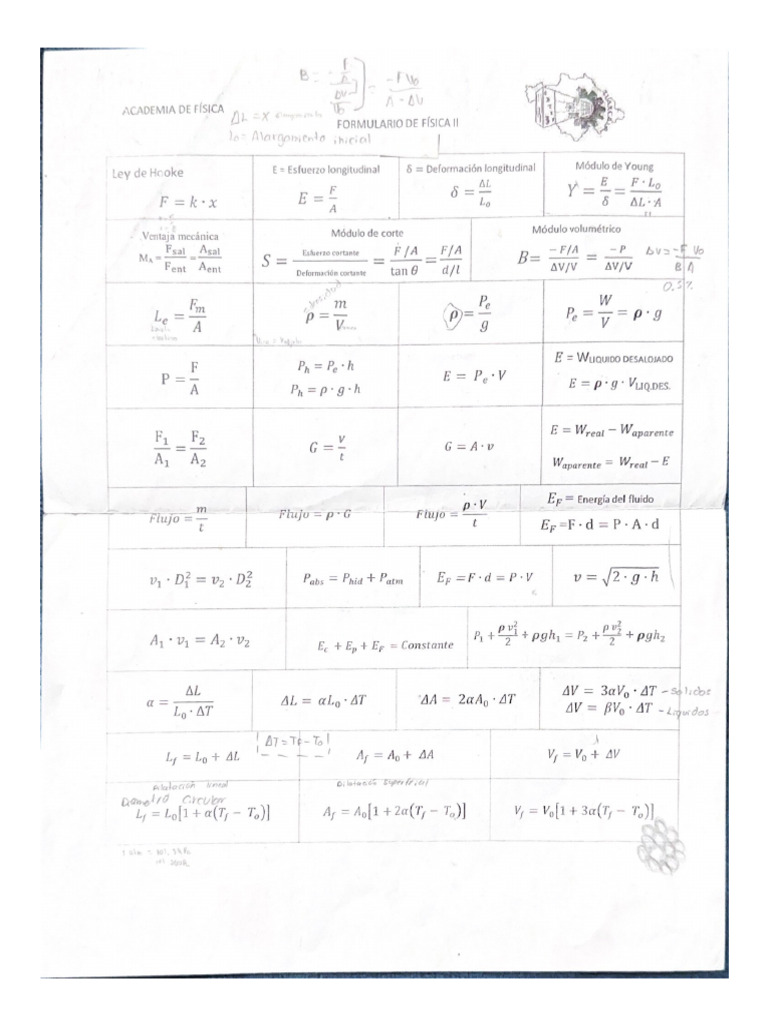 B = - F/A / ΔV/V₀ = -F V₀ / A · ΔV
ACADEMIA DE FÍSICA
ΔL = x
l₀ = Alargamiento inicial
FORMULARIO DE FÍSICA II
Ley de Hooke
F = k · x
E = Esfuerzo longitudinal
E = F/A
δ = Deformación longitudinal
δ = ΔL/L₀
Módulo de Young
Y = E/δ = F · L₀ / ΔL · A
Ventaja mecánica
M_A = F_sal/F_ent = A_sal/A_ent
Módulo de corte
S = Esfuerzo cortante / Deformación cortante = F/A / tan θ = F/A / d/l
Módulo volumétrico
B = −F/A / ΔV/V = −P / ΔV/V
ΔV = -F V₀ / B A
L_e = F_m/A
densidad
ρ = m/V
ρ = P_e/g
P_e = W/V = ρ · g
P = F/A
P_h = P_e · h
P_h = ρ · g · h
E = P_e · V
E = W LIQUIDO DESALOJADO
E = ρ · g · V LIQ.DES.
F₁/A₁ = F₂/A₂
G = V/t
G = A · v
E = W_real − W_aparente
W_aparente = W_real − E
Flujo = m/t
Flujo = ρ · G
Flujo = ρ · V / t
E_F = Energía del fluido
E_F =F · d = P · A · d
v₁ · D₁² = v₂ · D₂²
P_abs = P_hid + P_atm
E_F = F · d = P · V
v = √2 · g · h
A₁ · v₁ = A₂ · v₂
E_c + E_p + E_F = Constante
P₁ + ρ v₁²/2 + ρgh₁ = P₂ + ρ v₂²/2 + ρgh₂
α = ΔL / L₀ · ΔT
ΔL = αL₀ · ΔT
ΔA = 2αA₀ · ΔT
ΔV = 3αV₀ · ΔT - Solidos
ΔV = βV₀ · ΔT - Liquidos
L_f = L₀ + ΔL
ΔT = T_F - T₀
A_f = A₀ + ΔA
V_f = V₀ + ΔV
Dilatación lineal
Circular
L_f = L₀[1 + α(T_f − T_o)]
Dilatación Superficial
A_f = A₀[1 + 2α(T_f − T_o)]
V_f = V₀[1 + 3α(T_f − T_o)]